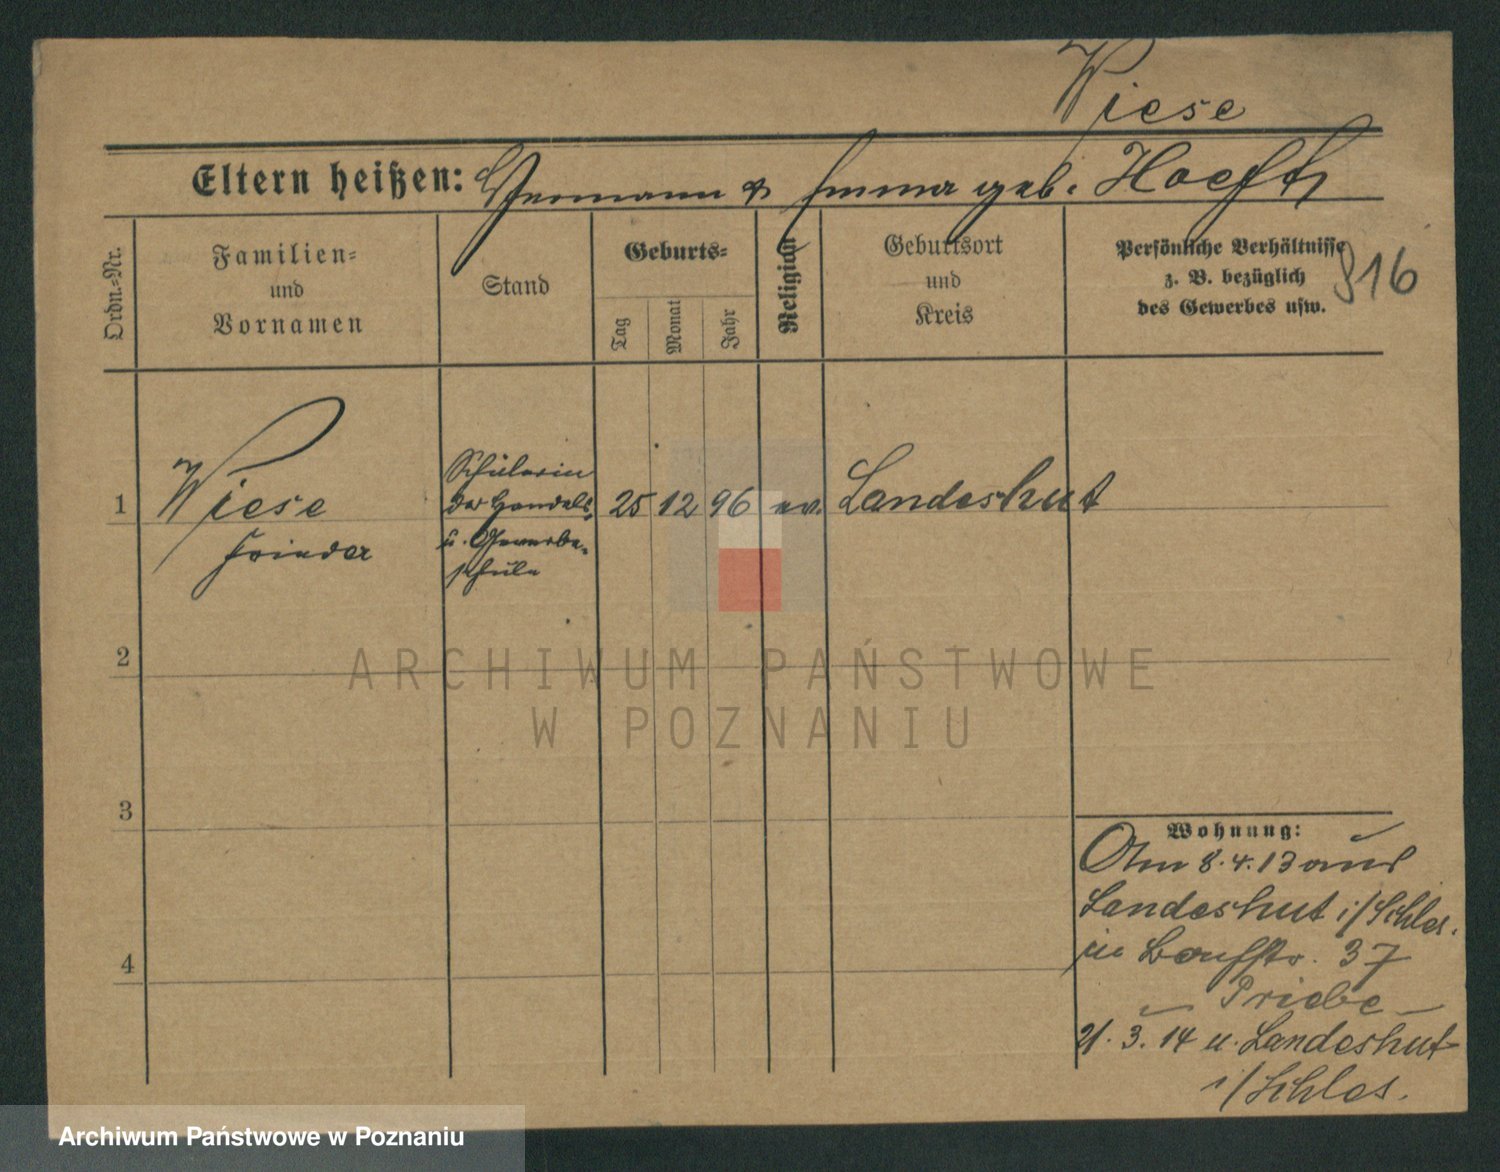 Wiese
Eltern heißen: Hermann & Emma geb. Hoefft
Ordn.-Nr.
Familien-
und
Vornamen
Stand
Geburts-
Tag
Monat
Jahr
Religion
Geburtsort
und
Kreis
Persönliche Verhältnisse
z. B. bezüglich
des Gewerbes usw.
916
1
Wiese
Schülerin
der Handels-
u. Gewerbe-
schule
25 12 96 ev. Landeshut
2
3
4
ARCHIWUM PAŃSTWOWE
W POZNANIU
Wohnung:
Am 8.4.13 aus
Landeshut i/Schles.
in 37
Priebe
21.3.14 n. Landeshut
i/Schles.
Archiwum Państwowe w Poznaniu